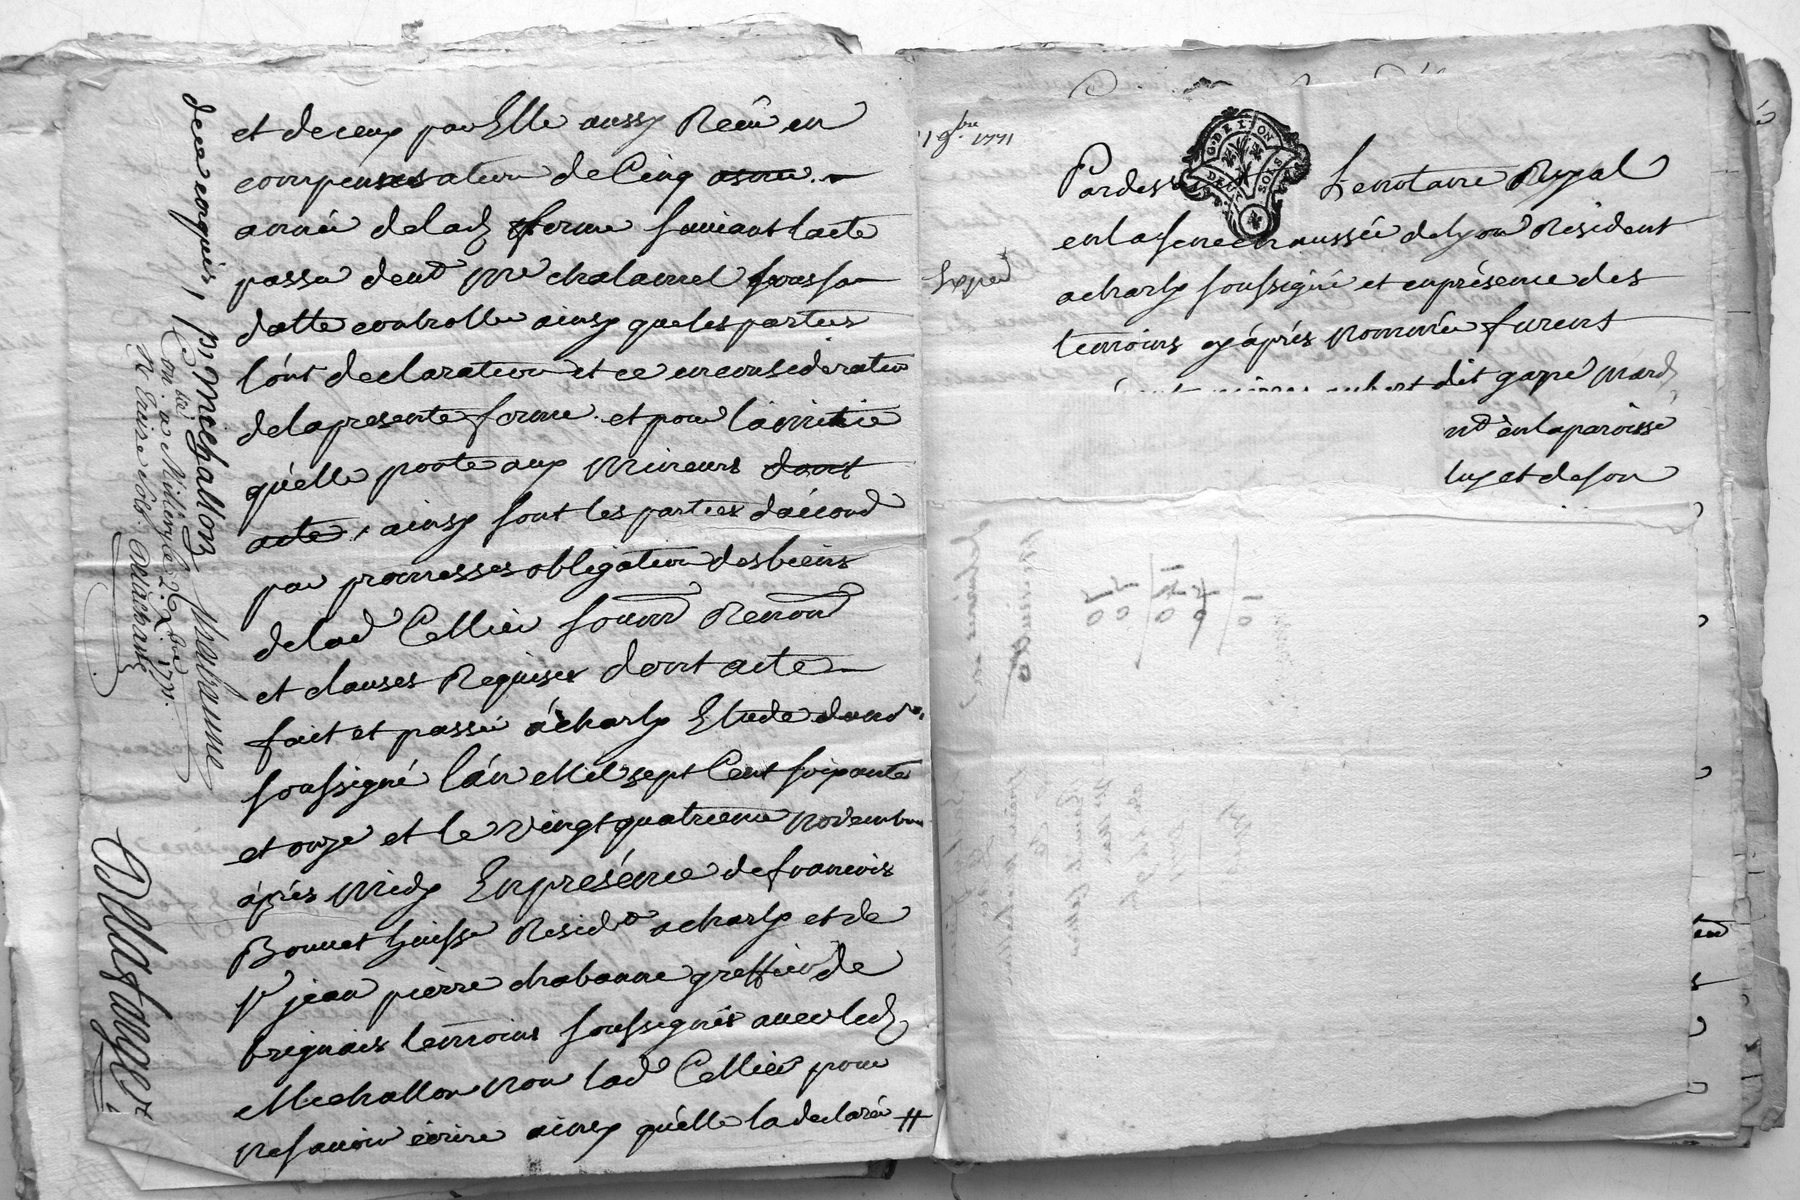 et de ceux par Elle aussy Reçu en
compensation de Cinq
année de lad ferme suivant lacte
passé devt Me chalamel sous sa
datte controllé ainsy que les parties
l'ont declaration et ce en consideration
de la presente ferme et pour l'amitié
qu'elle porte aux Mineurs dont
acte, ainsy sont les parties d'accord
par promesses obligation des biens
de lad Cellier soum Renon
et clauses Requises dont acte
fait et passé à charly Etude dud no.
soussigné l'an Mil sept Cent soixante
et onze et le vingt quatrieme novembre
après Midy En présence de francois
Bonnet huissr Residt a charly et de
sr jean pierre chabanne greffier de
brignais temoins soussignés avec led
Michallon non lad Cellier pour
ne savoir écrire ainsy qu'elle la declaré #
de ce enquis /
p. Michallon Chabanne
Con. a Millery le 26 Xbre 1771.
9bre 1771
Exped
Par des Le notaire Royal
en la senechaussée de lyon Résident
a charly soussigné et en présence des
temoins cy après nommés furent
pierre aubert dit gapé mard
nd en la paroisse
luy et de son
G. DE LYON
DEUX SOLS